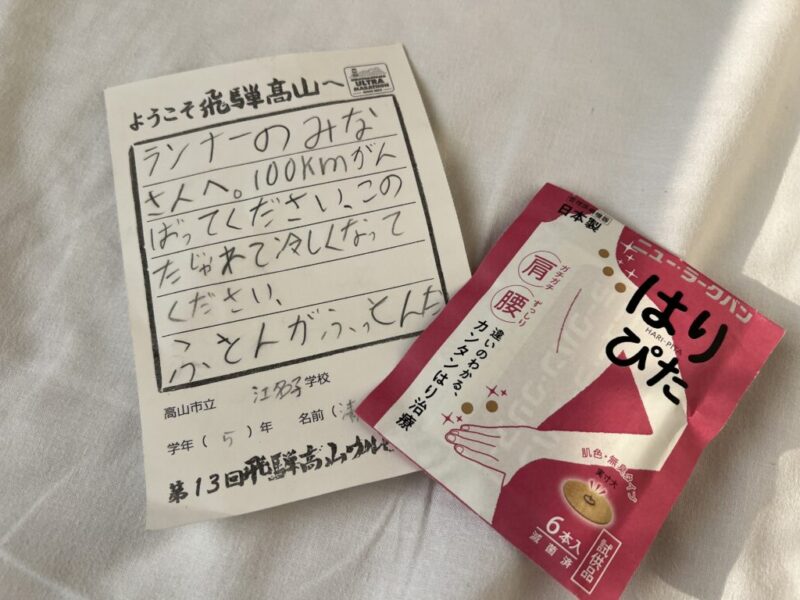 ようこそ飛騨高山へ
ULTRA
MARATHON
ランナーのみな
さんへ。100kmがん
ばってください、この
だじゃれで冷しくなって
ください、
ふとんがふっとんだ
高山市立 江名子学校
学年(5)年 名前(
第13回飛騨高山ウル
日本製
ニュー・ラークバン
はり
ぴた
HARI-PITA
肩 ガチガチ
腰 ずっしり
違いのわかる、
カンタンはり治療
肌色・無臭タイプ
実寸大
6本入
滅菌済
試供品